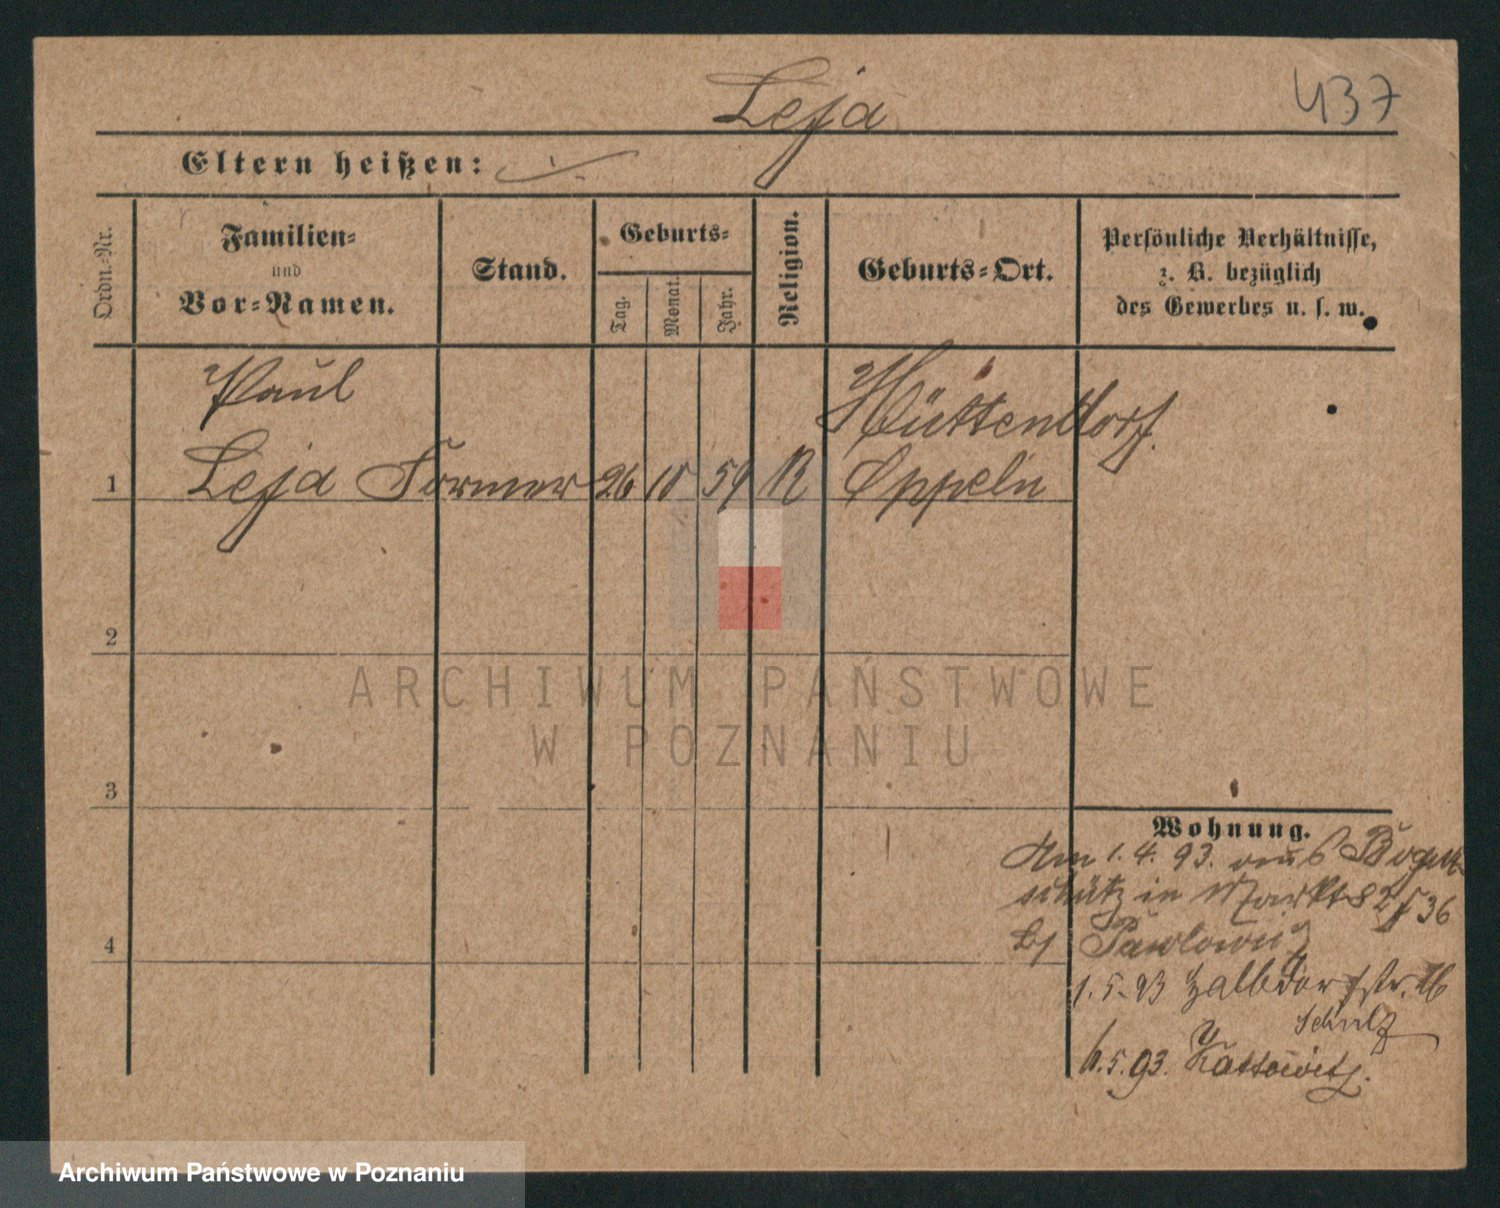 Leja
437
Eltern heißen: ./.
Ordn.-Nr.
Familien-
und
Vor-Namen.
Stand.
Geburts-
Tag.
Monat.
Jahr.
Religion.
Geburts-Ort.
Persönliche Verhältnisse,
z. B. bezüglich
des Gewerbes u. s. w.
Paul
Hüttendorf.
1 Leja Former 26 10 59 R Oppeln
2
ARCHIWUM PAŃSTWOWE
W POZNANIU
3
Wohnung.
Am 1. 4. 93. aus
schütz in Markt 82 36
bj Pawlowig
4
1. 5. 93 Halbdorfstr. 16
Schulz
6. 5. 93. Kattowitz.
Archiwum Państwowe w Poznaniu